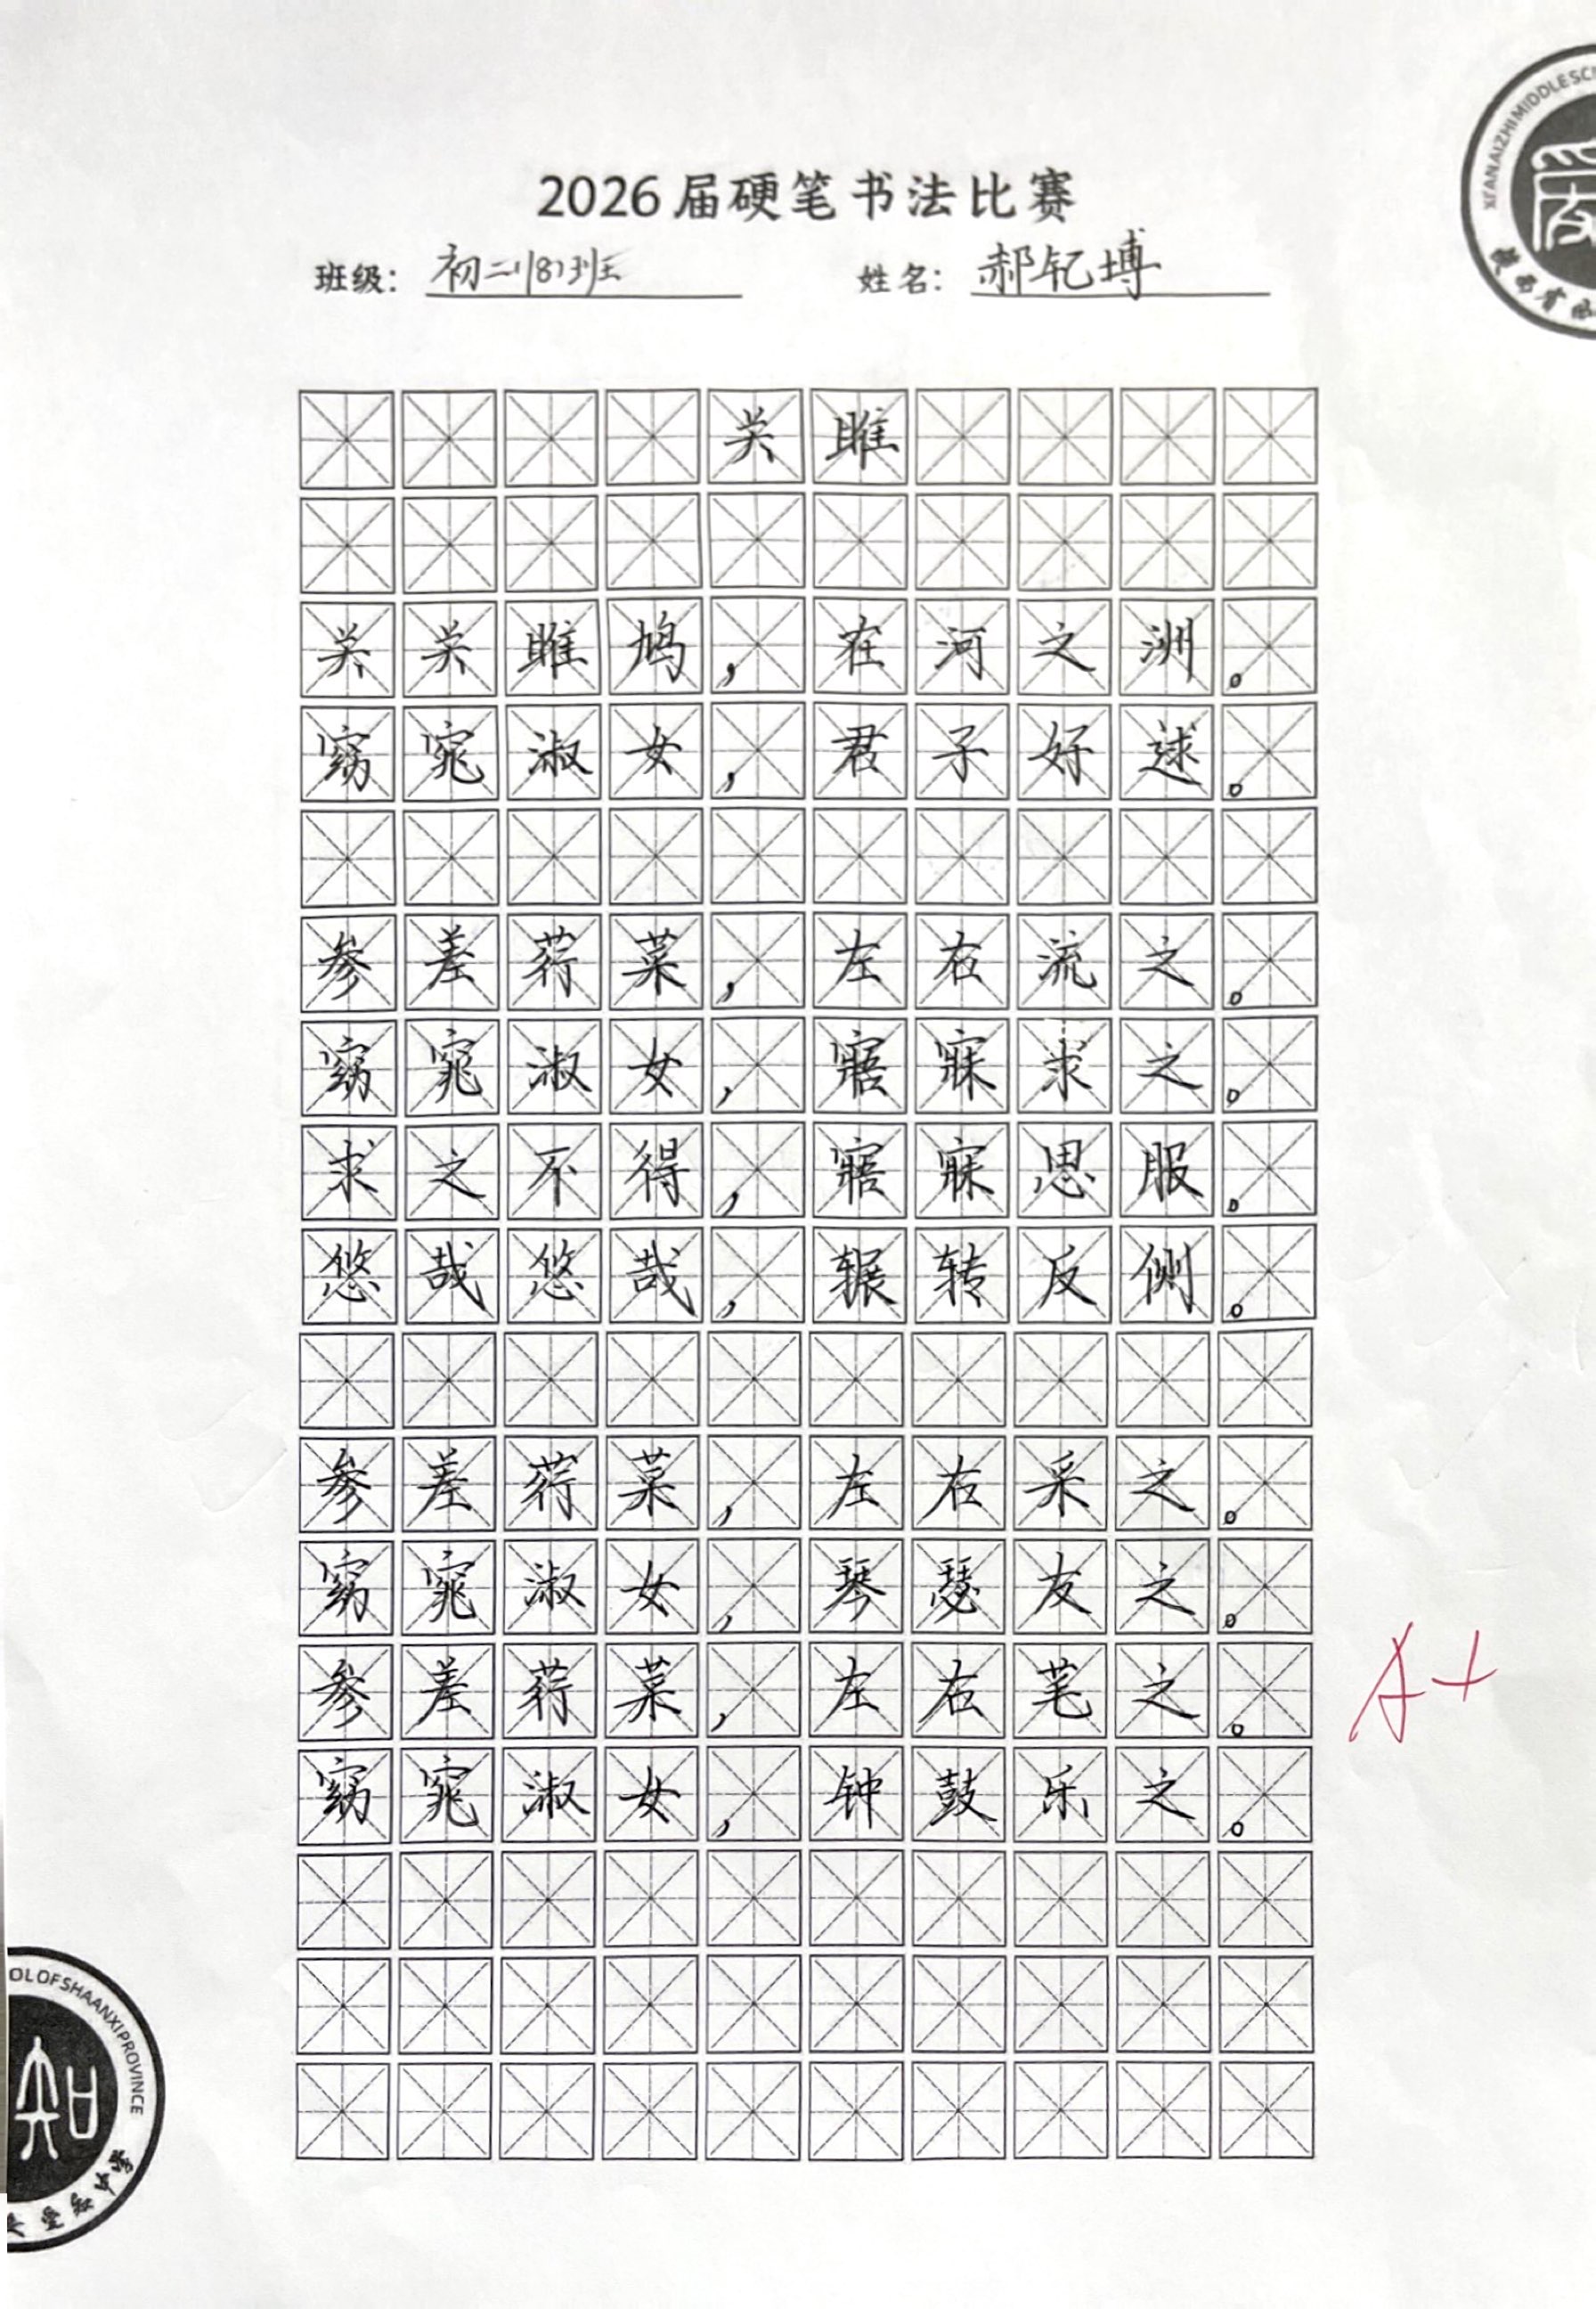 2026届硬笔书法比赛
班级：初二(18)班 姓名：郝钇博
XI'ANAIZHIMIDDLESC
陕西省
关雎
关关雎鸠，在河之洲。
窈窕淑女，君子好逑。
参差荇菜，左右流之。
窈窕淑女，寤寐求之。
求之不得，寤寐思服。
悠哉悠哉，辗转反侧。
参差荇菜，左右采之。
窈窕淑女，琴瑟友之。
参差荇菜，左右芼之。
窈窕淑女，钟鼓乐之。
A+
OLOFSHAANXIPROVINCE
知
爱知中学